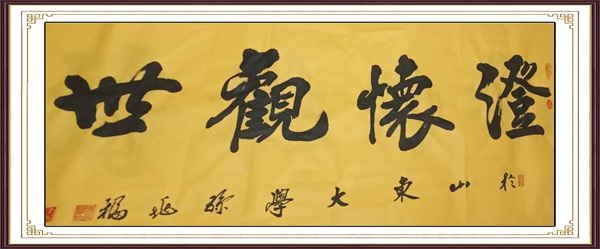 澄懷觀世
於山東大學福